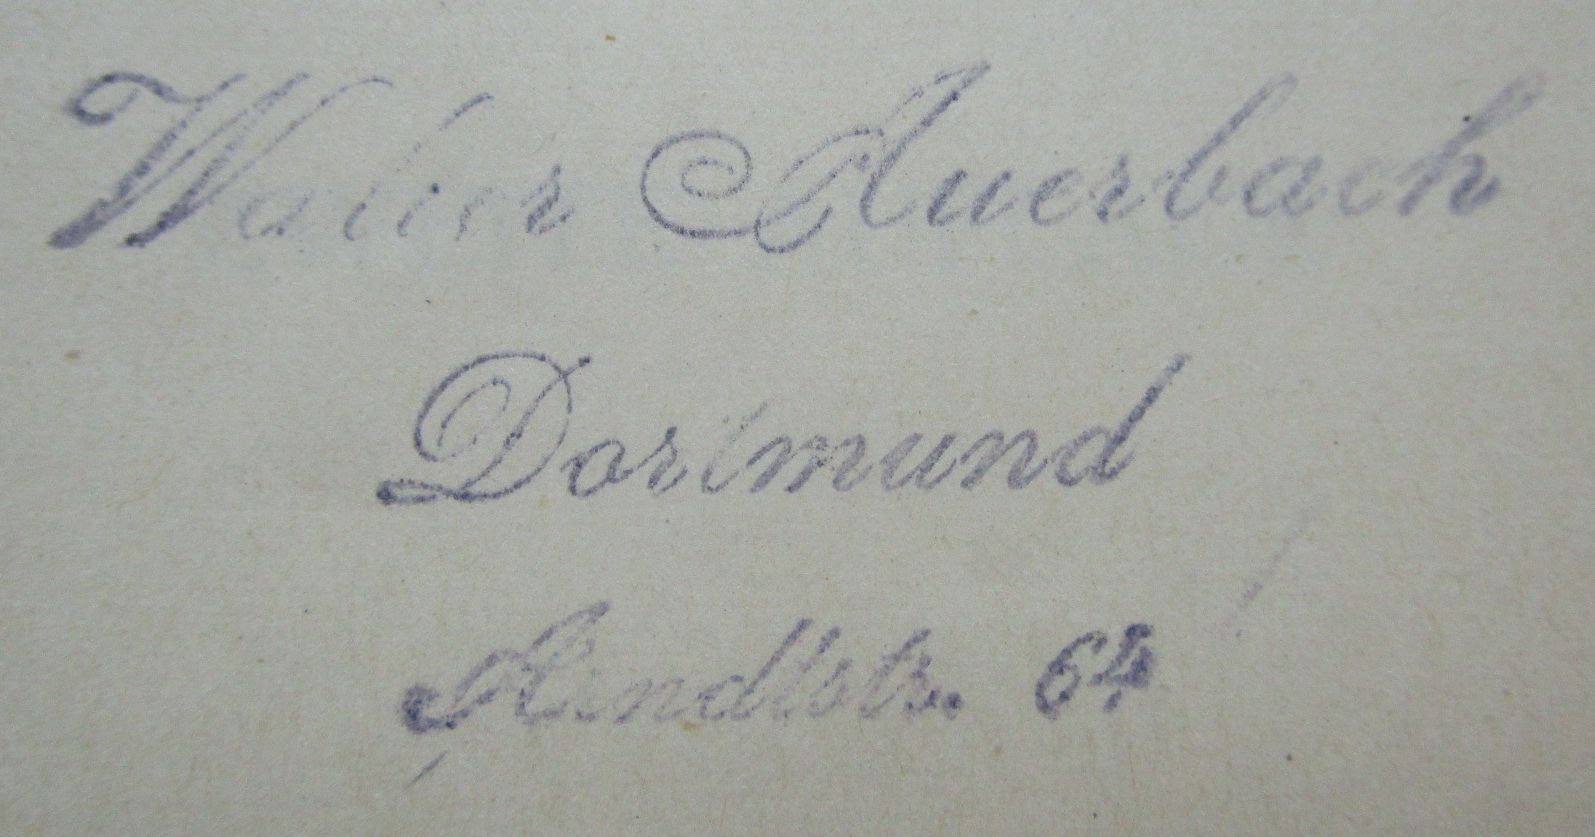 Walter Auerbach
Dortmund
Arndtstr. 64